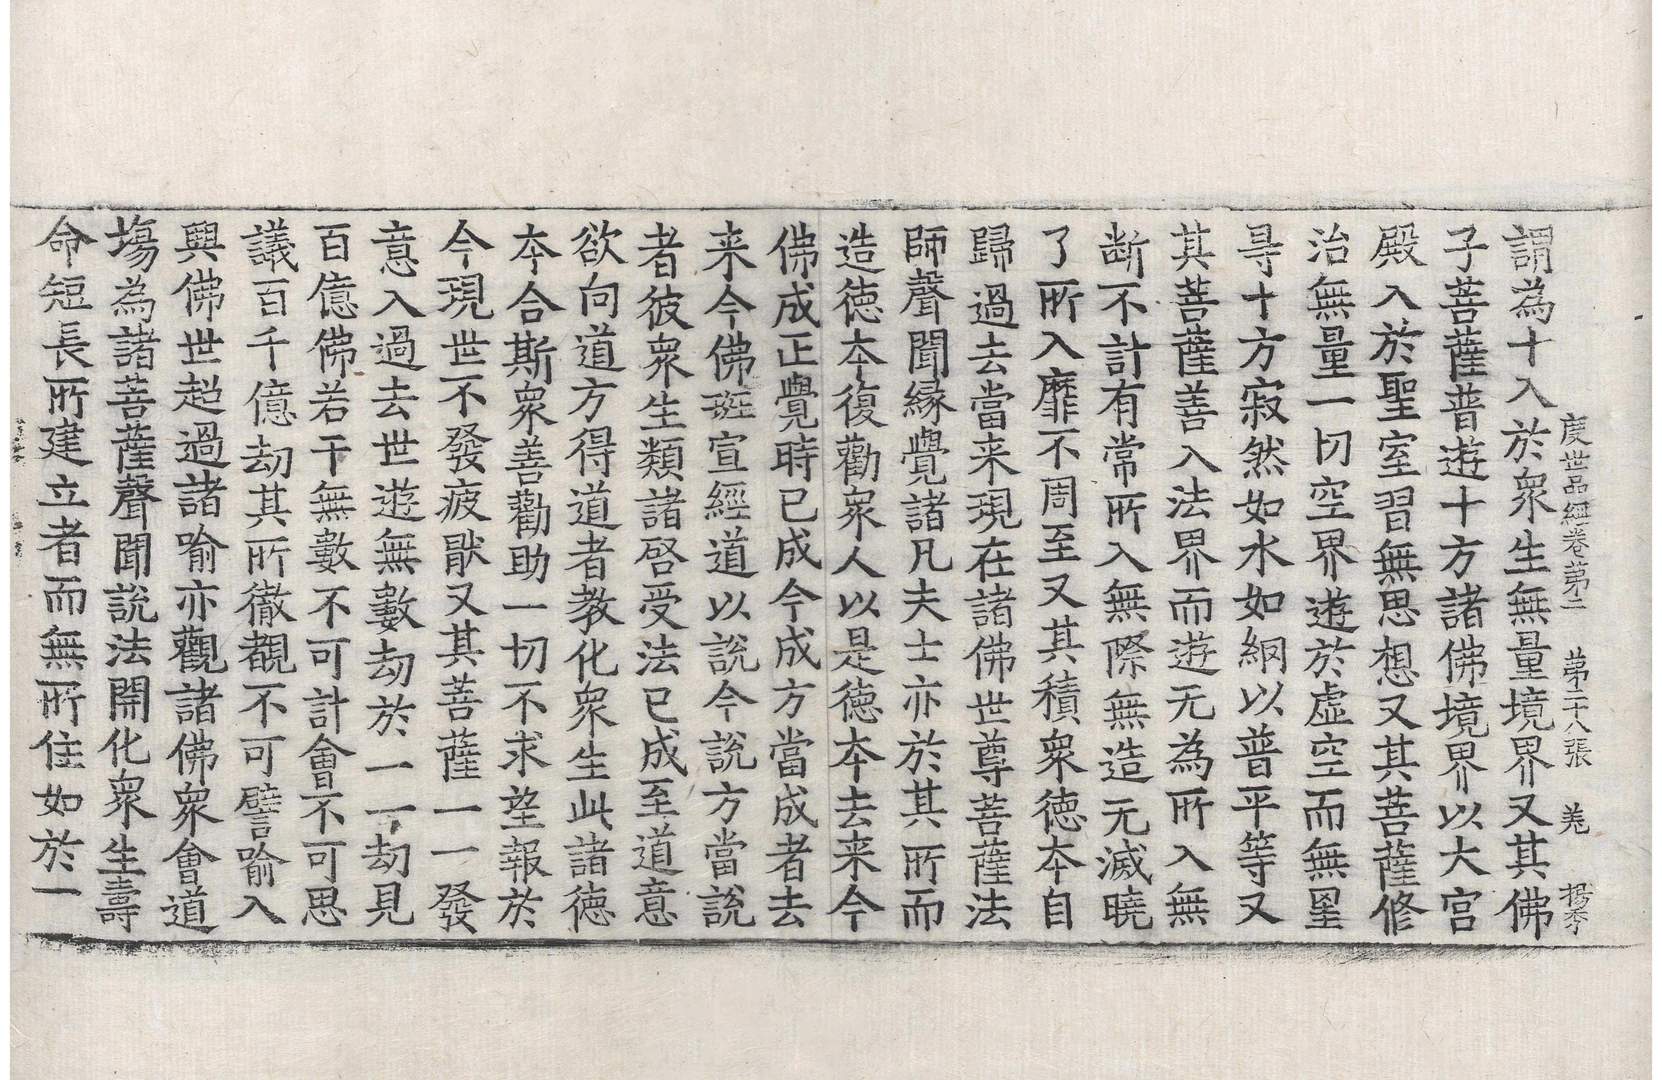 度世品經卷苐二 苐二十八張 羌 揚秀
謂為十入於衆生無量境界又其佛
子菩薩普遊十方諸佛境界以大宫
殿入於聖室習無思想又其菩薩修
治無量一切空界遊於虚空而無罣
㝵十方寂然如水如網以普平等又
其菩薩善入法界而遊无為所入無
断不計有常所入無際無造无滅曉
了所入靡不周至又其積衆德夲自
歸過去當来現在諸佛世尊菩薩法
師聲聞緣覺諸凡夫士亦於其所而
造德夲復勸衆人以是德夲去来今
佛成正覺時已成今成方當成者去
来今佛班宣經道以說今說方當說
者彼衆生類諸啓受法已成至道意
欲向道方得道者教化衆生此諸德
夲合斯衆善勸助一切不求望報於
今現世不發疲猒又其菩薩一一發
意入過去世遊無數劫於一一劫見
百億佛若干無數不可計會不可思
議百千億劫其所徹覩不可譬喻入
興佛世超過諸喻亦觀諸佛衆會道
塲為諸菩薩聲聞說法開化衆生壽
命短長所建立者而無所住如於一